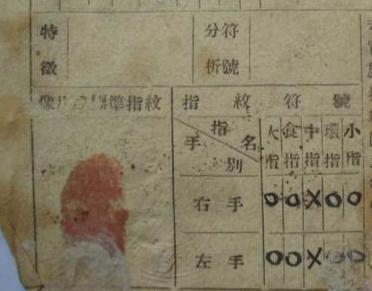 特徵 符號分析
紋指準標
指紋符號
指名 手別 大指 食指 中指 環指 小指
右手 O O X O O
左手 O O X O O